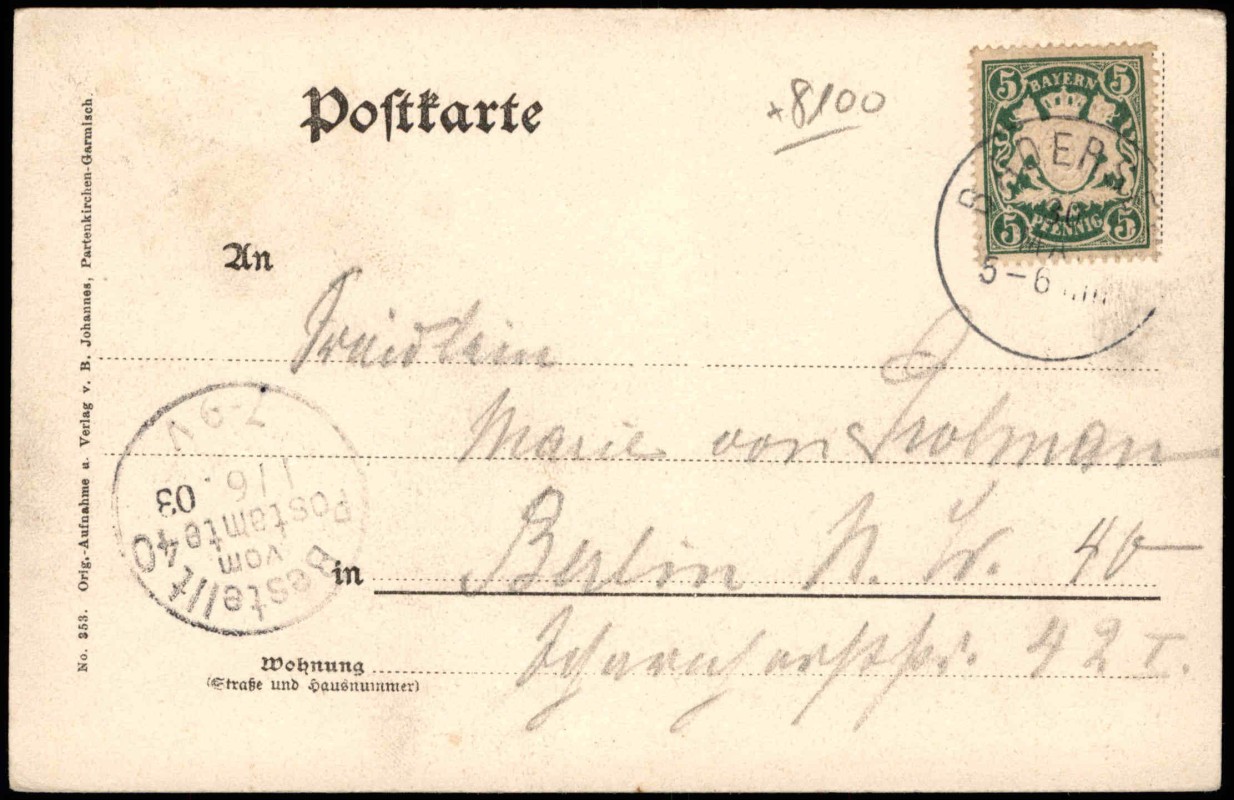 Postkarte
+8100
5 BAYERN 5
5 PFENNIG 5
30
5-6
An
Fräulein
Marie von
Berlin N. W. 40
in
Scharnhorststr. 42 I.
Wohnung
(Straße und Hausnummer)
Bestellt
vom
Postamte 40
1/6. 03
7-9 V
No. 353. Orig.-Aufnahme u. Verlag v. B. Johannes, Partenkirchen-Garmisch.